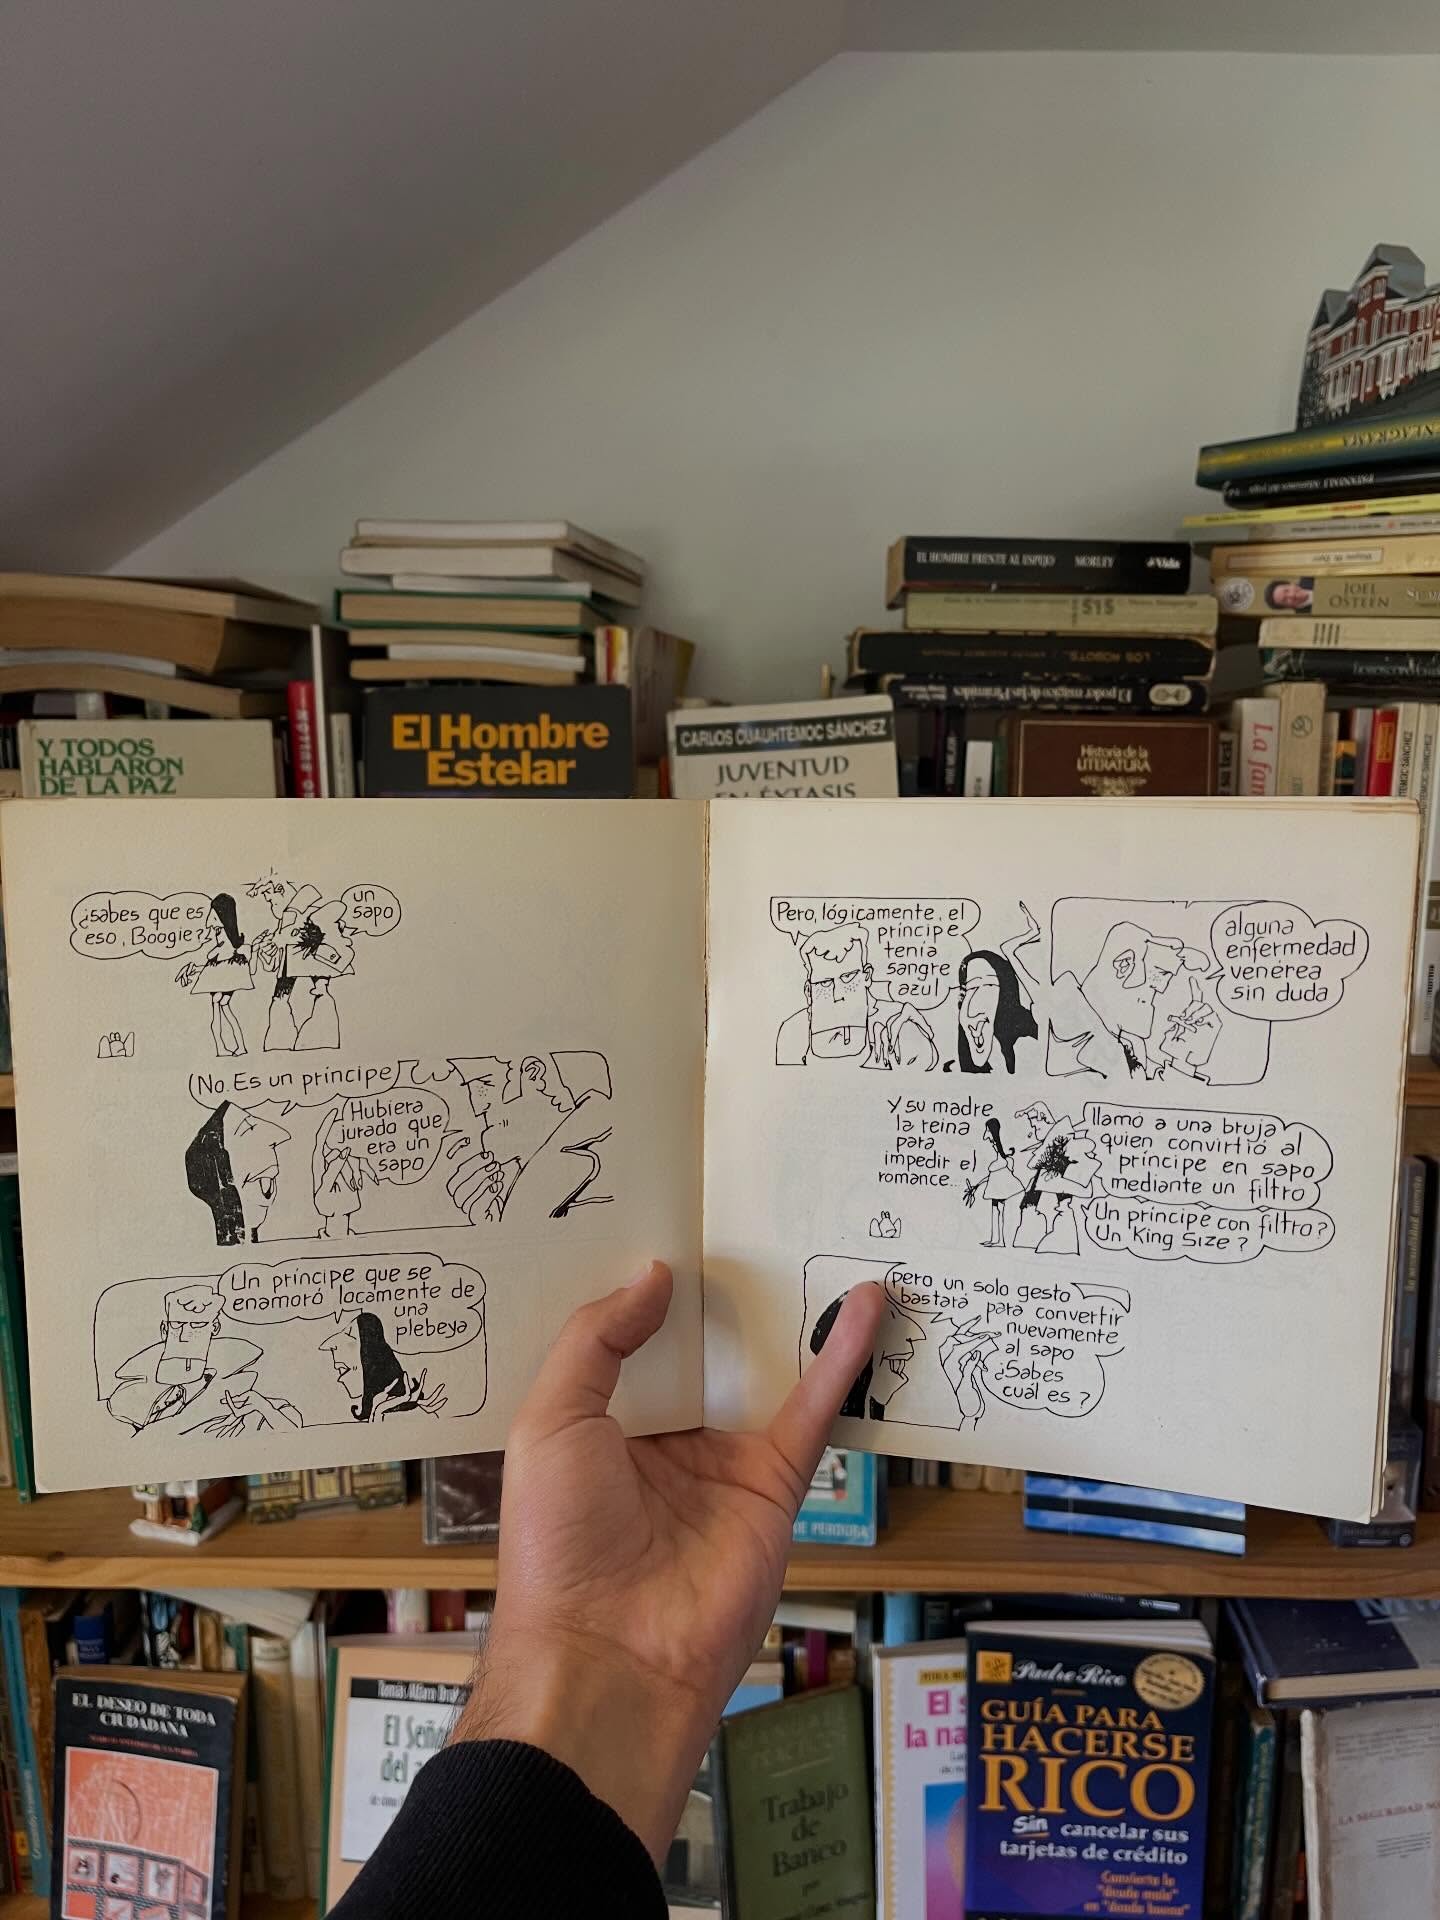 NEAGRAMA
EL HOMBRE FRENTE AL ESPEJO MORLEY Vida
$15
JOEL
OSTEEN
LOS ROBOTS
El poder mágico de las Pirámides
Y TODOS
HABLARON
DE LA PAZ
El Hombre
Estelar
CARLOS CUAUHTÉMOC SÁNCHEZ
JUVENTUD
EN ÉXTASIS
Historia de la
LITERATURA
La fam
¿Sabes que es
eso, Boogie?
un
sapo
No. Es un príncipe
Hubiera
jurado que
era un
sapo
Un príncipe que se
enamoró locamente de
una
plebeya
Pero, lógicamente, el
príncipe
tenía
sangre
azul
alguna
enfermedad
venérea
sin duda
Y su madre
la reina
para
impedir el
romance...
llamó a una bruja
quien convirtió al
príncipe en sapo
mediante un filtro
Un príncipe con filtro?
Un King Size?
pero un solo gesto
bastará para convertir
nuevamente
al sapo
¿Sabes
cuál es?
EL DESEO DE TODA
CIUDADANA
El Seño
del
Trabajo
de
Banco
por
El s
la na
Padre Rico
GUÍA PARA
HACERSE
RICO
Sin cancelar sus
tarjetas de crédito
Convierta la
"deuda mala"
en "deuda buena"
LA SEGURIDAD